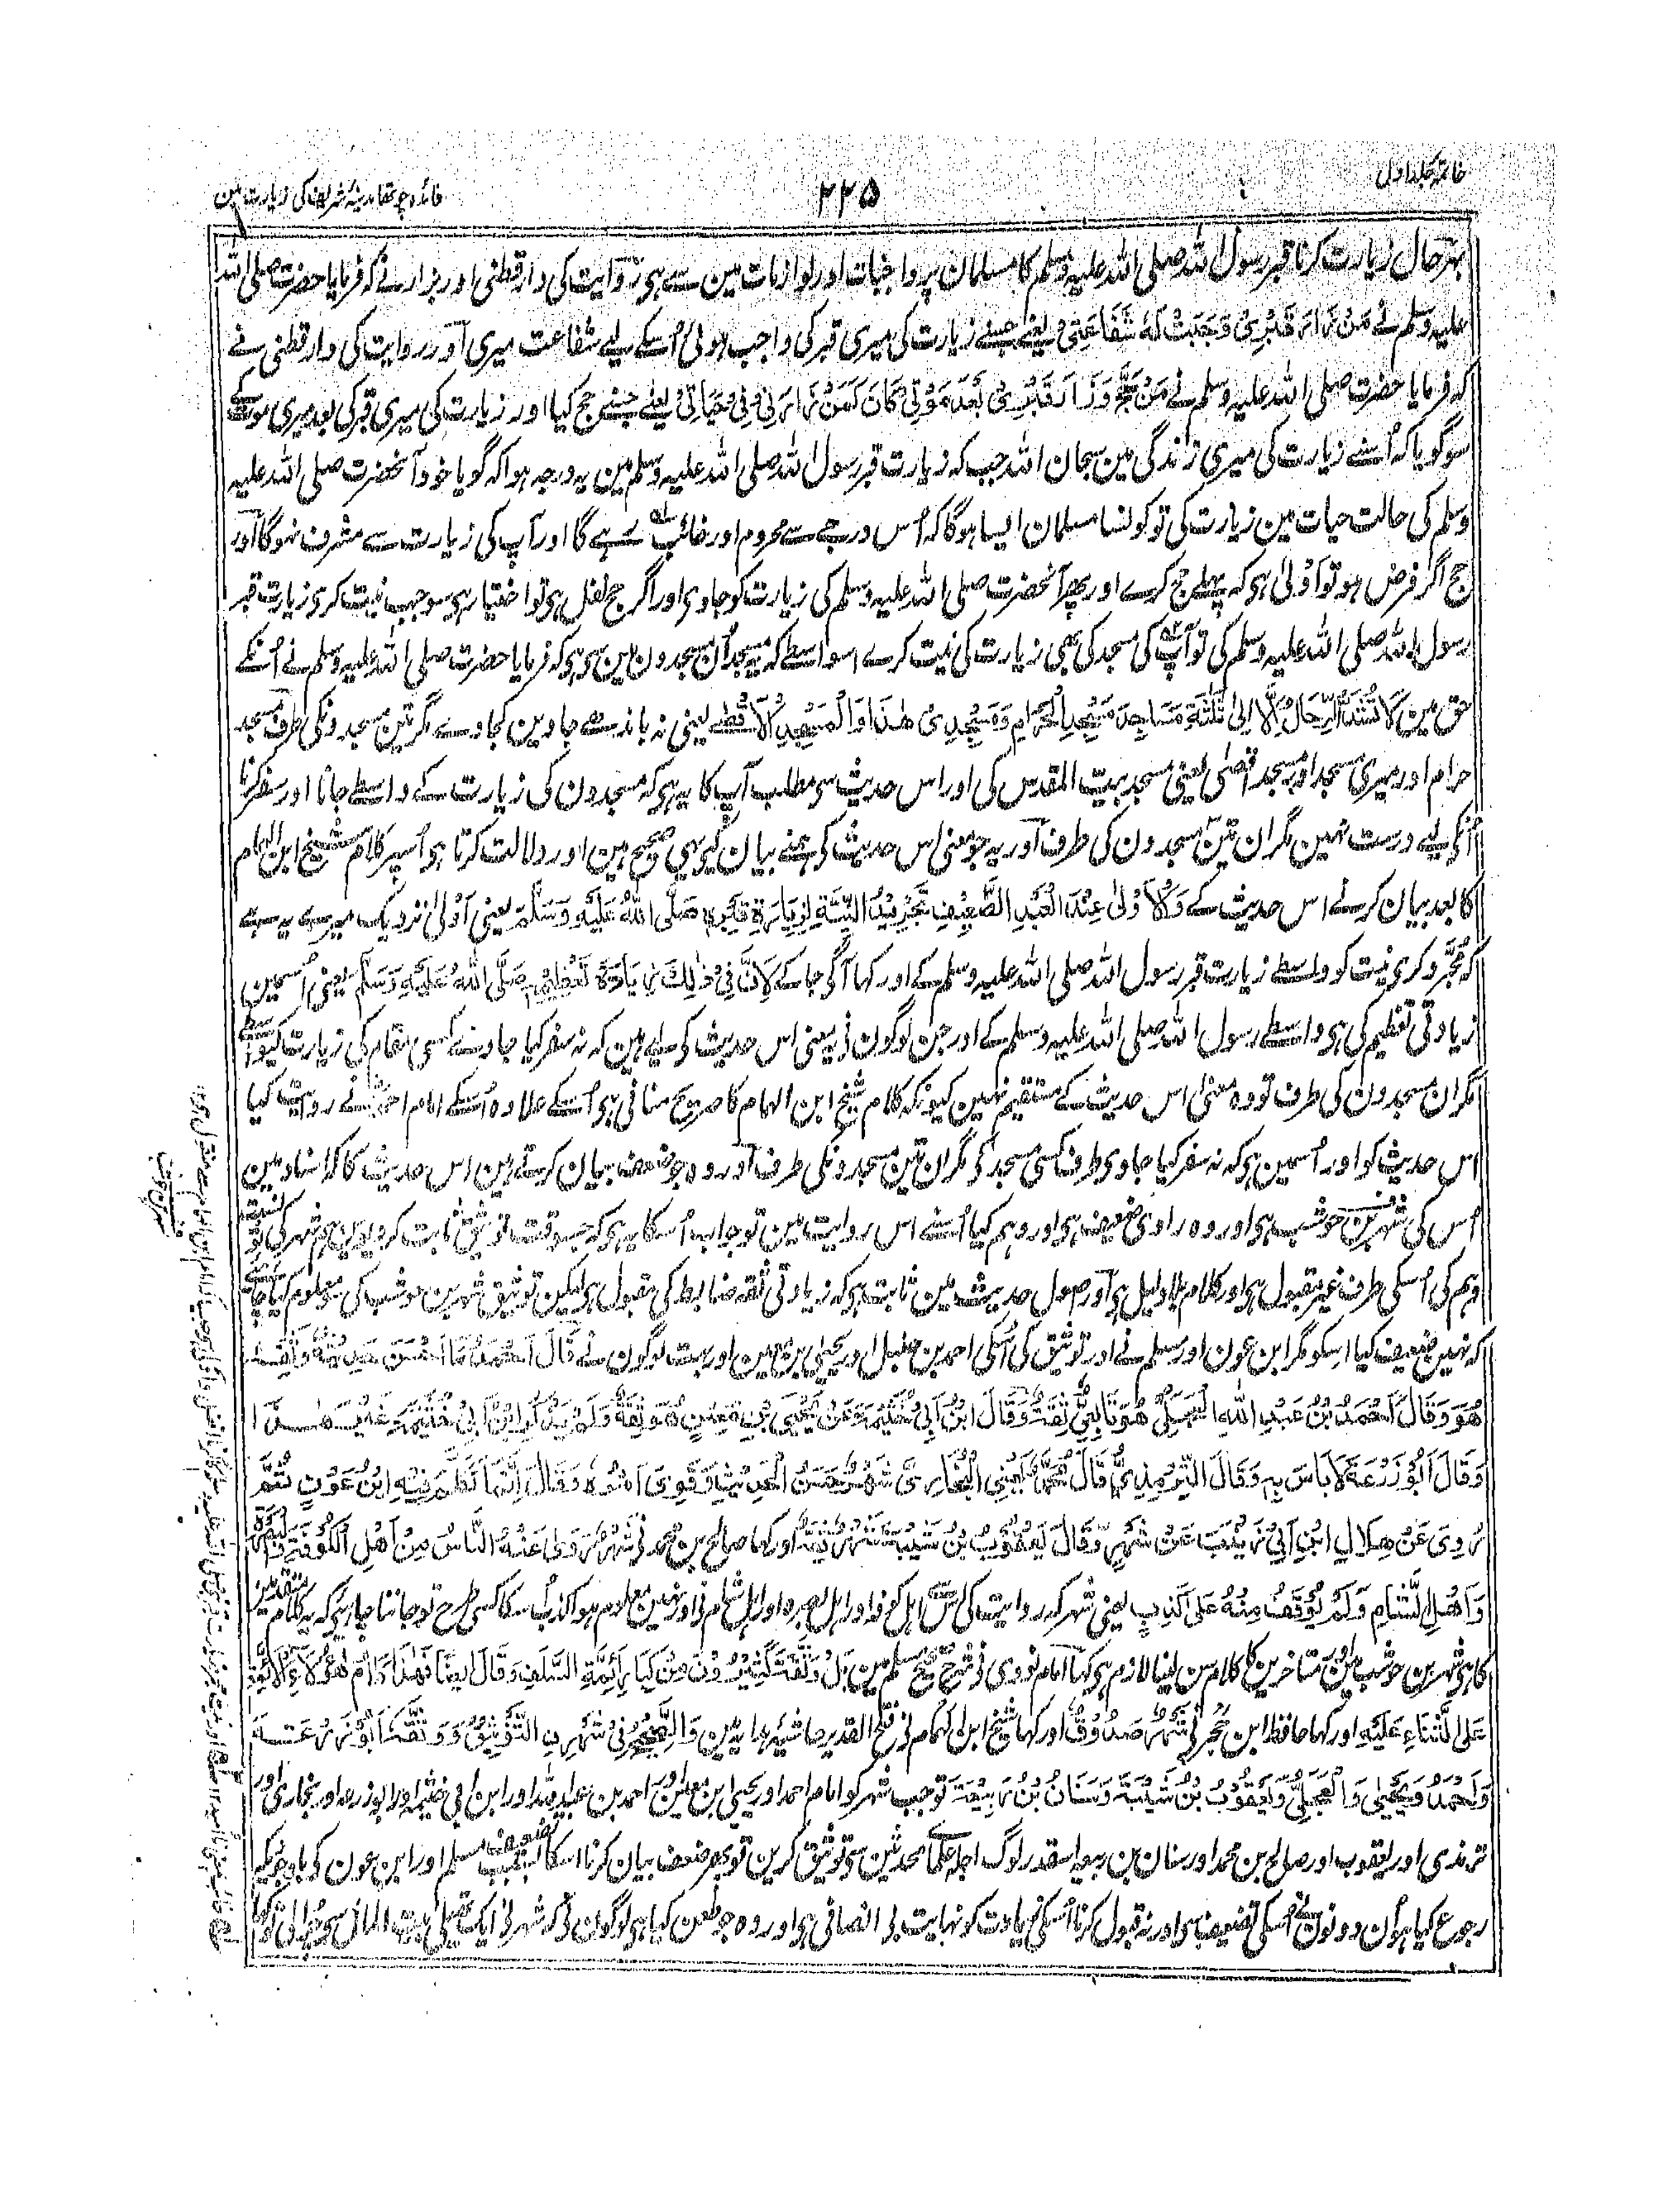 خاتمہ جلد اول
۲۲۵
فائدہ چوتھا مدینہ شریف کی زیارت مین
بہر حال زیارت کرنا قبر رسول اللہ صلی اللہ علیہ وسلم کا مسلمان پر واجبات اور لوازمات مین سے ہی روایت کی دارقطنی اور بزار نے کہ فرمایا حضرت صلی اللہ
علیہ وسلم نے مَنْ زَارَ قَبْرِیْ وَجَبَتْ لَهٗ شَفَاعَتِیْ یعنے جسنے زیارت کی میری قبر کی واجب ہوئی اُسکے لیے شفاعت میری اور روایت کی دارقطنی نے
کہ فرمایا حضرت صلی اللہ علیہ وسلم نے مَنْ حَجَّ وَزَارَ قَبْرِیْ بَعْدَ مَوْتِیْ کَانَ کَمَنْ زَارَنِیْ فِیْ حَیَاتِیْ یعنے جسنے حج کیا اور زیارت کی میری قبر کی بعد میری موت کے
سو گویا کہ اُسنے زیارت کی میری زندگی مین سبحان اللہ جب کہ زیارت قبر رسول اللہ صلی اللہ علیہ وسلم مین یہ درجہ ہوا کہ گویا خود آنحضرت صلی اللہ علیہ
وسلم کی حالت حیات مین زیارت کی تو کونسا مسلمان ایسا ہوگا کہ اُس درجے سے محروم اور خائب رہے گا اور آپ کی زیارت سے مشرف نہوگا اور
حج اگر فرض ہو تو اَوْلیٰ ہی کہ پہلے حج کرے اور پھر آنحضرت صلی اللہ علیہ وسلم کی زیارت کو جاوی اور اگر حج نفل ہی تو اختیار ہی سو جب نیت کری زیارت قبر
رسول اللہ صلی اللہ علیہ وسلم کی تو آپ کی مسجد کی بھی زیارت کی نیت کرے اسواسطے کہ یہ مسجد اُن مسجدون مین سی ہی کہ فرمایا حضرت صلی اللہ علیہ وسلم نے اُنکے
حق مین لَا تُشَدُّ الرِّحَالُ اِلَّا اِلیٰ ثَلٰثَةِ مَسَاجِدَ مَسْجِدِ الْحَرَامِ وَمَسْجِدِیْ هٰذَا وَالْمَسْجِدِ الْاَقْصٰے یعنی نہ باندھے جاوین کجاوے مگر تین مسجدونکی طرف مسجد
حرام اور میری مسجد اور مسجد اقصٰی یعنی مسجد بیت المقدس کی اور اس حدیث سی مطلب آپ کا یہ ہی کہ مسجدون کی زیارت کے واسطے جانا اور سفر کرنا
اُنکی لیے درست نہین مگر ان تین مسجدون کی طرف اور یہ جو معنی اس حدیث کو ہمنے بیان کیی یہی صحیح ہین اور دلالت کرتا ہو اُسپر کلام شیخ ابن الہمام
کا بعد بیان کرنے اس حدیث کے وَالْاَوْلیٰ عِنْدَ الْعَبْدِ الضَّعِیْفِ تَجْرِیْدُ النِّیَّةِ لِزِیَارَةِ قَبْرِهٖ صَلَّی اللهُ عَلَیْهِ وَسَلَّمَ یعنی اَوْلیٰ نزدیک میرے یہ ہے
کہ مُجَرَّد کری نیت کو واسطے زیارت قبر رسول اللہ صلی اللہ علیہ وسلم کے اور کہا آگی جا کے لِاَنَّ فِیْ ذٰلِكَ زِیَادَةَ تَعْظِیْمِهٖ صَلَّی اللهُ عَلَیْهِ وَسَلَّمَ یعنی اُسمین
زیادتی تعظیم کی ہو واسطے رسول اللہ صلی اللہ علیہ وسلم کے اور جن لوگون نے یعنی اس حدیث کو لیے ہین کہ نہ سفر کیا جاوے کسی مقام کی زیارت کیواسطے
مگر ان مسجدون کی طرف تو وہ معنی اس حدیث کے مستقیم نہین کیونکہ کلام شیخ ابن الہمام کا صریح منافی ہی اُسکے علاوہ اُسکے امام احمد نے روایت کیا
اس حدیث کو اور اُسمین ہی کہ نہ سفر کیا جاوی طرف کسی مسجد کو مگر ان تین مسجدونکی طرف اور وہ جو ضعف بیان کرتے ہین اس حدیث کا کہ اسناد مین
اُس کی شہر بن حوشب ہی اور وہ راوی ضعیف ہی اور وہم کیا اُسنے اس روایت مین تو جواب اُسکا یہ ہی کہ جسوقت توثیق ثابت کر دیوین ہم شہر کی تو نسبت
وہم کی اُسکی طرف غیر مقبول ہی اور کلام بلا دلیل ہی اور اصول حدیث مین ثابت ہی کہ زیادتی ثقہ ضابط کی مقبول ہی لیکن توثیق شہر بن حوشب کی معلوم کیا چاہیے
کہ نہین ضعیف کیا اسکو مگر ابن عون اور مسلم نے اور توثیق کی اُسکی احمد بن حنبل اور یحیی بن معین اور بہت لوگون نے قَالَ اَحْمَدُ مَا اَحْسَنَ حَدِیْثَهٗ وَثِقَةٌ
هُوَ وَقَالَ اَحْمَدُ بْنُ عَبْدِ اللهِ الْعِجْلِیُّ هُوَ تَابِعِیٌّ ثِقَةٌ وَقَالَ ابْنُ اَبِیْ خَیْثَمَةَ عَنْ یَحْیَی بْنِ مَعِیْنٍ هُوَ ثِقَةٌ وَلَمْ یَذْکُرِ ابْنُ اَبِیْ خَیْثَمَةَ غَیْرَ هٰذَا
وَقَالَ اَبُوْ زُرْعَةَ لَا بَاْسَ بِهٖ وَقَالَ التِّرْمِذِیُّ قَالَ مُحَمَّدٌ یَعْنِی الْبُخَارِیَّ شَهْرٌ حَسَنُ الْحَدِیْثِ وَقَوِیَ اَمْرُهٗ وَقَالَ اِنَّمَا تَکَلَّمَ فِیْهِ ابْنُ عَوْنٍ ثُمَّ
رُوِیَ عَنْ هِلَالِ ابْنِ اَبِیْ زَیْنَبَ عَنْ شَهْرٍ وَقَالَ یَعْقُوْبُ بْنُ شَیْبَةَ شَهْرٌ ثِقَةٌ اور کہا صالح بن محمد نے شَهْرٌ رَوٰی عَنْهُ النَّاسُ مِنْ اَهْلِ الْکُوْفَةِ وَالْبَصْرَةِ
وَاَهْلِ الشَّامِ وَلَمْ یُوْقَفْ مِنْهُ عَلیٰ کَذِبٍ یعنی شہر کہ روایت کی اُس سے اہل کوفہ اور اہل بصرہ اور اہل شام نے اور نہین معلوم ہوا کذب اسکا کسی طرح تو جاننا چاہیے کہ یہ کلام متقدمین
کا ہی شہر بن حوشب مین متاخرین کا کلام سن لینا لازم ہی کہا امام نووی نے شرح صحیح مسلم مین بَلْ وَثَّقَهٗ کَثِیْرُوْنَ مِنْ کِبَارِ اَئِمَّةِ السَّلَفِ وَقَالَ اَیْضًا فَهٰذَا کَلَامُ هٰؤُلَاءِ الْاَئِمَّةِ
عَلَی الثَّنَاءِ عَلَیْهِ اور کہا حافظ ابن حجر نے شَهْرٌ صَدُوْقٌ اور کہا شیخ ابن الہمام نے فتح القدیر حاشیہ ہدایہ مین وَالصَّحِیْحُ فِیْ شَهْرٍ التَّوْثِیْقُ وَوَثَّقَهٗ اَبُوْ زُرْعَةَ
وَاَحْمَدُ وَیَحْیٰی وَالْعِجْلِیُّ وَیَعْقُوْبُ بْنُ شَیْبَةَ وَسِنَانُ بْنُ رَبِیْعَةَ تو جب شہر کو امام احمد اور یحیی ابن معین اور احمد بن عبد اللہ اور ابن ابی خثیمہ اور ابو زرعہ اور بخاری اور
ترمذی اور یعقوب اور صالح بن محمد اور سنان بن ربیعہ اسقدر لوگ اجلہ علمائے محدثین سی توثیق کرین تو پھر ضعف بیان کرنا اسکا بسبب تضعیف مسلم اور ابن عون کی باوجودیکہ
رجوع کیا ہو اُن دونون نے اُسکی تضعیف سی اور نہ قبول کرنا اُسکی زیادت کو نہایت بی انصافی ہی اور وہ جو طعن کیا ہی لوگون نی کہ شہر نی ایک تھیلی بیت المال سی چورالی تو کہا